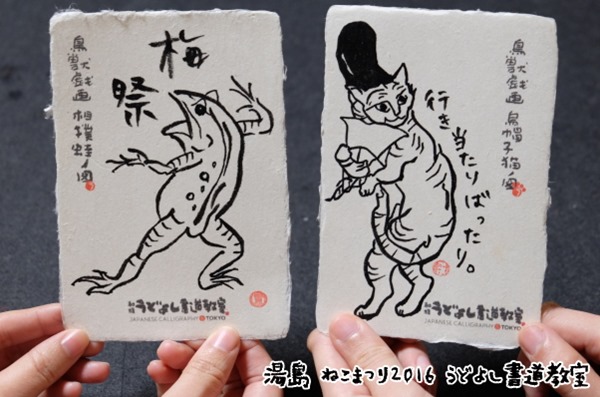 梅
祭
鳥獣戯画 相撲蛙ノ図
うどよし書道教室
JAPANESE CALLIGRAPHY TOKYO
行き
当たりばったり。
鳥獣戯画 烏帽子猫ノ図
うどよし書道教室
JAPANESE CALLIGRAPHY TOKYO
湯島 ねこまつり2016 うどよし書道教室